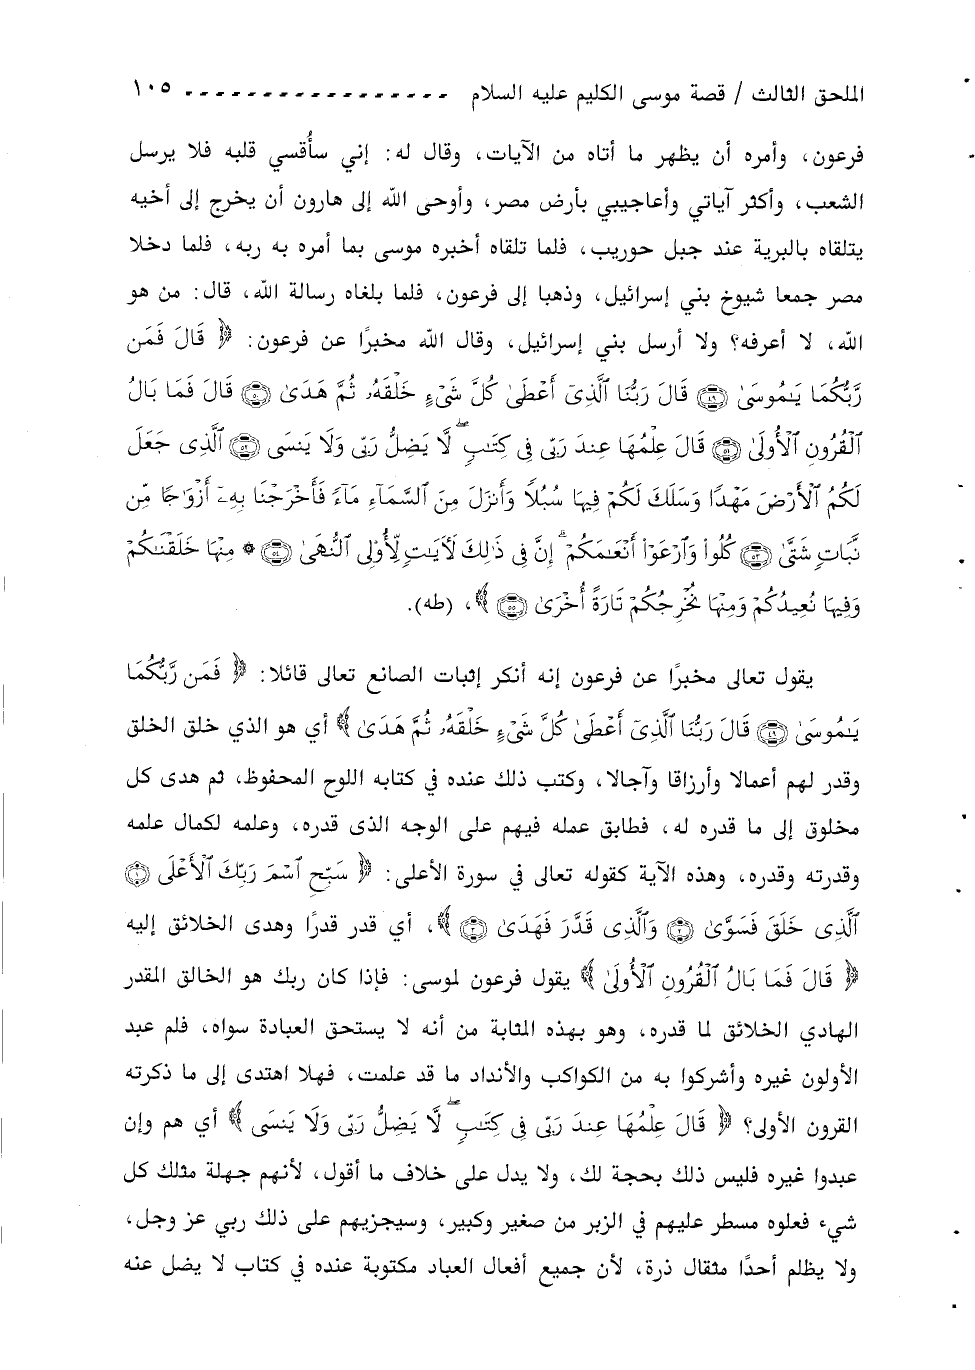 الملحق الثالث / قصة موسى الكليم عليه السلام ------------------ ١٠٥
فرعون، وأمره أن يظهر ما أتاه من الآيات، وقال له: إني سأُقسي قلبه فلا يرسل
الشعب، وأكثر آياتي وأعاجيبي بأرض مصر، وأوحى الله إلى هارون أن يخرج إلى أخيه
يتلقاه بالبرية عند جبل حوريب، فلما تلقاه أخبره موسى بما أمره به ربه، فلما دخلا
مصر جمعا شيوخ بني إسرائيل، وذهبا إلى فرعون، فلما بلغاه رسالة الله، قال: من هو
الله، لا أعرفه؟ ولا أرسل بني إسرائيل، وقال الله مخبرًا عن فرعون: ﴿ قَالَ فَمَن
رَّبُّكُمَا يَـٰمُوسَىٰ ﴿٤٩﴾ قَالَ رَبُّنَا ٱلَّذِىٓ أَعْطَىٰ كُلَّ شَىْءٍ خَلْقَهُۥ ثُمَّ هَدَىٰ ﴿٥٠﴾ قَالَ فَمَا بَالُ
ٱلْقُرُونِ ٱلْأُولَىٰ ﴿٥١﴾ قَالَ عِلْمُهَا عِندَ رَبِّى فِى كِتَـٰبٍ ۖ لَّا يَضِلُّ رَبِّى وَلَا يَنسَى ﴿٥٢﴾ ٱلَّذِى جَعَلَ
لَكُمُ ٱلْأَرْضَ مَهْدًا وَسَلَكَ لَكُمْ فِيهَا سُبُلًا وَأَنزَلَ مِنَ ٱلسَّمَآءِ مَآءً فَأَخْرَجْنَا بِهِۦٓ أَزْوَٰجًا مِّن
نَّبَاتٍ شَتَّىٰ ﴿٥٣﴾ كُلُوا۟ وَٱرْعَوْا۟ أَنْعَـٰمَكُمْ ۗ إِنَّ فِى ذَٰلِكَ لَـَٔايَـٰتٍ لِّأُو۟لِى ٱلنُّهَىٰ ﴿٥٤﴾ * مِنْهَا خَلَقْنَـٰكُمْ
وَفِيهَا نُعِيدُكُمْ وَمِنْهَا نُخْرِجُكُمْ تَارَةً أُخْرَىٰ ﴿٥٥﴾ ﴾، (طه).
يقول تعالى مخبرًا عن فرعون إنه أنكر إثبات الصانع تعالى قائلا: ﴿ فَمَن رَّبُّكُمَا
يَـٰمُوسَىٰ ﴿٤٩﴾ قَالَ رَبُّنَا ٱلَّذِىٓ أَعْطَىٰ كُلَّ شَىْءٍ خَلْقَهُۥ ثُمَّ هَدَىٰ ﴾ أي هو الذي خلق الخلق
وقدر لهم أعمالا وأرزاقا وآجالا، وكتب ذلك عنده في كتابه اللوح المحفوظ، ثم هدى كل
مخلوق إلى ما قدره له، فطابق عمله فيهم على الوجه الذى قدره، وعلمه لكمال علمه
وقدرته وقدره، وهذه الآية كقوله تعالى في سورة الأعلى: ﴿ سَبِّحِ ٱسْمَ رَبِّكَ ٱلْأَعْلَى ﴿١﴾
ٱلَّذِى خَلَقَ فَسَوَّىٰ ﴿٢﴾ وَٱلَّذِى قَدَّرَ فَهَدَىٰ ﴿٣﴾ ﴾، أي قدر قدرًا وهدى الخلائق إليه
﴿ قَالَ فَمَا بَالُ ٱلْقُرُونِ ٱلْأُولَىٰ ﴾ يقول فرعون لموسى: فإذا كان ربك هو الخالق المقدر
الهادي الخلائق لما قدره، وهو بهذه المثابة من أنه لا يستحق العبادة سواه، فلم عبد
الأولون غيره وأشركوا به من الكواكب والأنداد ما قد علمت، فهلا اهتدى إلى ما ذكرته
القرون الأولى؟ ﴿ قَالَ عِلْمُهَا عِندَ رَبِّى فِى كِتَـٰبٍ ۖ لَّا يَضِلُّ رَبِّى وَلَا يَنسَى ﴾ أي هم وإن
عبدوا غيره فليس ذلك بحجة لك، ولا يدل على خلاف ما أقول، لأنهم جهلة مثلك كل
شيء فعلوه مسطر عليهم في الزبر من صغير وكبير، وسيجزيهم على ذلك ربي عز وجل،
ولا يظلم أحدًا مثقال ذرة، لأن جميع أفعال العباد مكتوبة عنده في كتاب لا يضل عنه